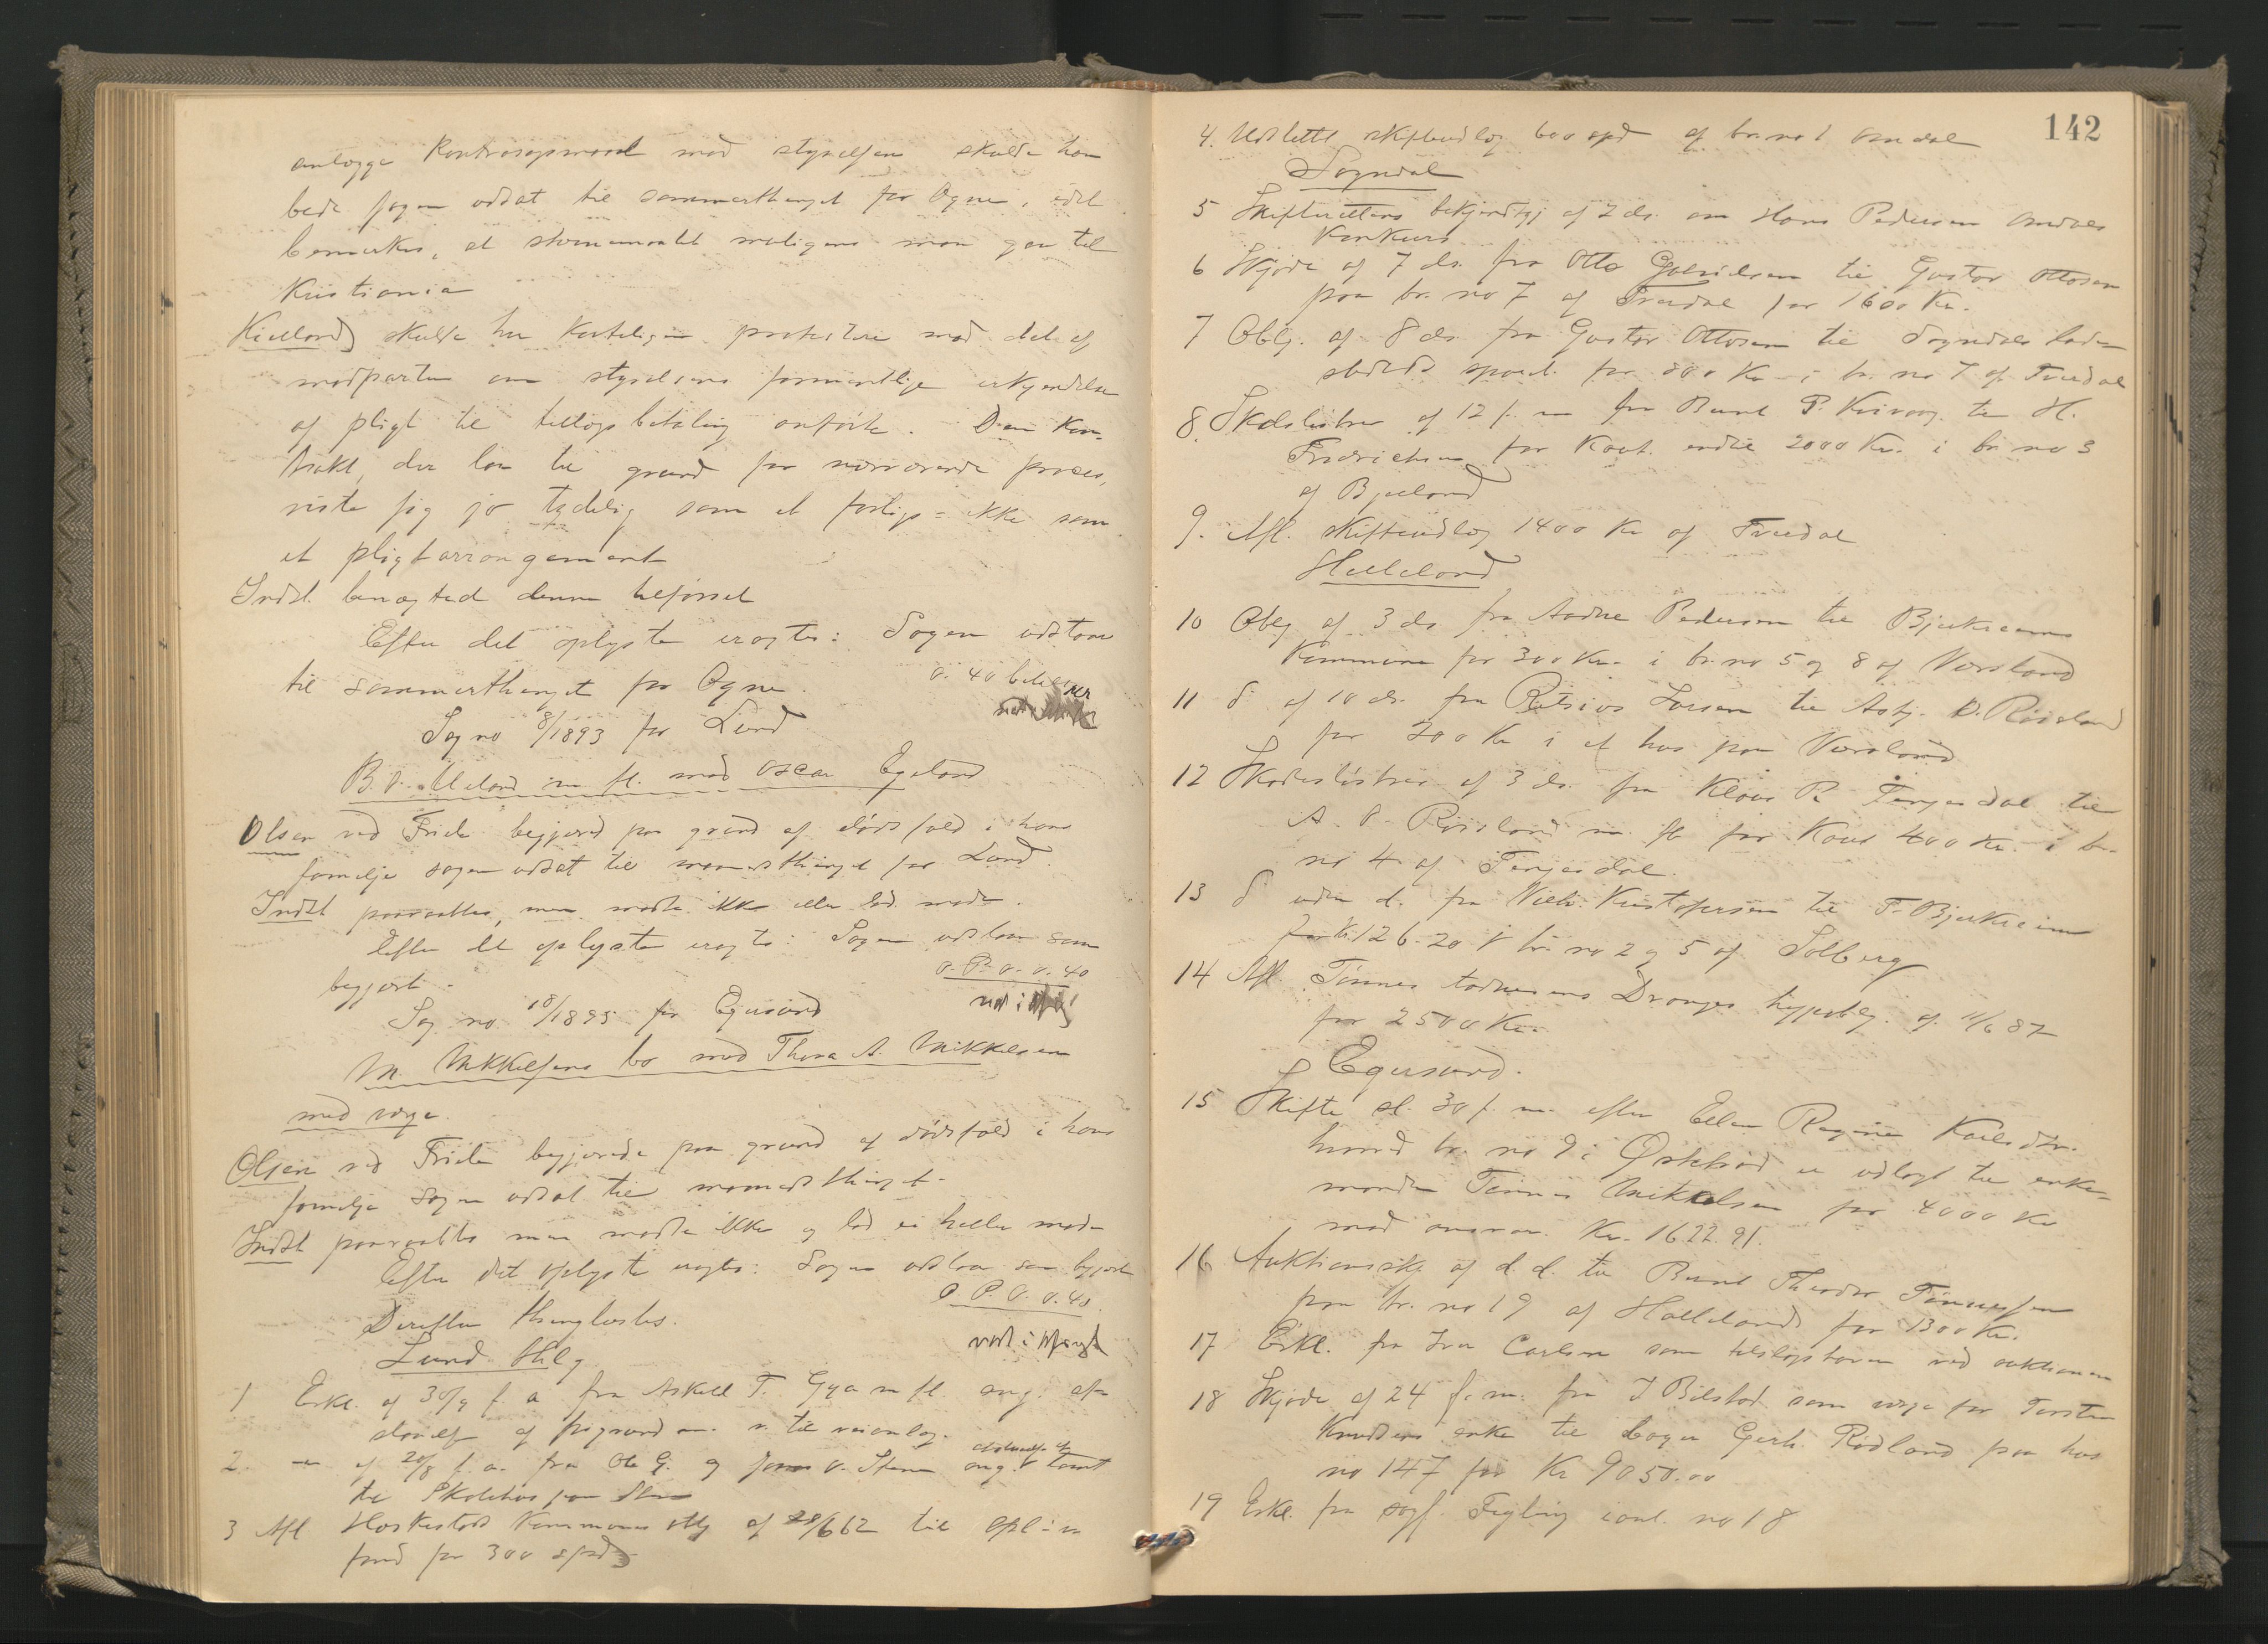 anlægge Kontrasøgsmaal mod styrelsen skulde han
bede sagen udsat til sommerthinget for Ogne, idet
bemærkes, at stevnemaalet muligens maa gaa til
Kristiania
Kielland skulde her korteligen protestere mod det af
modparten om styrelsens formentlige erkjendelse
af pligt til tillægsbetaling anførte. Den Kon-
trakt, der laa til grund for nærværende proces,
viste sig jo tydelig som et forligs- ikke som
et pligtarrangement
Indst. benægted denne tilførsel
Efter det oplyste eragtes: Sagen udstaar
til sommerthinget for Ogne.
o. 40 betaler
Sag no 8/1893 for Lund
B. O. Ueland m fl. mod Oscar Egeland
Olsen ved Friele begjæred paa grund af dødsfald i hans
familje sagen udsat til maanedsthinget for Lund.
Indst paaraabtes, men mødte ikke eller lod møde.
Efter det oplyste eragtes: Sagen udstaar som
begjært.
O. P. O. 0.40
Sag no 18/1895 for Egersund
M. Mikkelsens bo mod Thora A. Mikkelsen
med værge.
Olsen ved Friele begjærede paa grund af dødsfald i hans
familje sagen udsat til maanedsthinget.
Indst paaraabtes men mødte ikke og lod ei heller møde
Efter det oplyste eragtes: Sagen udstaar som begjært
O. P. O. 0.40
Derefter thinglæstes.
Lund thlg
1 Erkl. af 30/9 f. a. fra Askild T. Gya m fl. ang. af-
staaelse af fri grund m. v. til veianlæg.
2. — af 20/8 f. a. fra Ole G. og Jonas O. Stene ang. afstaaelse af tomt
til Skolehus paa Stene
3 Afl Heskestad Kommunes oblg af 28/6 62 til Opl.v.
fond for 300 spd
142
4. Udslettet skifteudlæg 600 spd af br. no 1 Omdal
Sogndal
5 Skifterettens bekjendtgj af 2 ds. om Hans Pedersen Omdals
Konkurs
6 Skjøde af 7 ds. fra Otto Gabrielsen til Gustav Ottosen
paa br. no 7 af Tvedal for 1600 Kr.
7 Oblg. af 8 ds fra Gustav Ottosen til Sogndals lade-
steds spareb. for 800 Kr i br. no 7 af Tvedal
8. Skdsløsbrev af 12 f. m fra Bernt P. til H.
Fredriksen for Kaut. indtil 2000 Kr. i br no 3
af Bjelland
9. Afl. skifteudlæg 1400 Kr af Tvedal
Helleland
10 Oblg af 3 ds fra Aadne Pedersen til Bjerkreims
Kommune for 300 Kr. i br. no 5 og 8 af Versland
11 d° af 10 ds. fra Larsen til Asbj. O. Røisland
for 200 Kr i et hus paa Versland
12 Skadesløsbrev af 3 ds. fra Klaus P. Terjesdal til
A. O. Røisland m. fl for Kaut 400 Kr. i br.
no 4 af Terjesdal.
13 d° uden d. fra Vilh. Kristofersen til F. Bjerkreim
for Kr. 126.20 i br. no 2 og 5 af Solberg
14 Afl Tønnes Tadnesens Dranges hypoblg. af 11/6 87
for 2500 Kr.
Egersund.
15 Skifte sl. 30 f. m. efter Ellen Regine Karlsdtr.
hvorved br. no 9 i Ørsked er udlagt til enke-
manden Tønnes Mikkelsen for 4000 Kr
mod ansvar Kr. 1622.91.
16 Auktionsskj af d. d. til Bernt Theodor Tønnesen
paa br. no 19 af Hallelands for 1300 Kr.
17 Erkl. fra Iver Carlsen som tilslagshaver ved auktionen
18 Skjøde af 24 f. m. fra J Bilstad som værge for Torsten
Knudsens enke til bager Gerh. Rødland paa hus
no 147 for Kr 9050.00
19 Erkl. fra sagf. Feyling anl. no 18